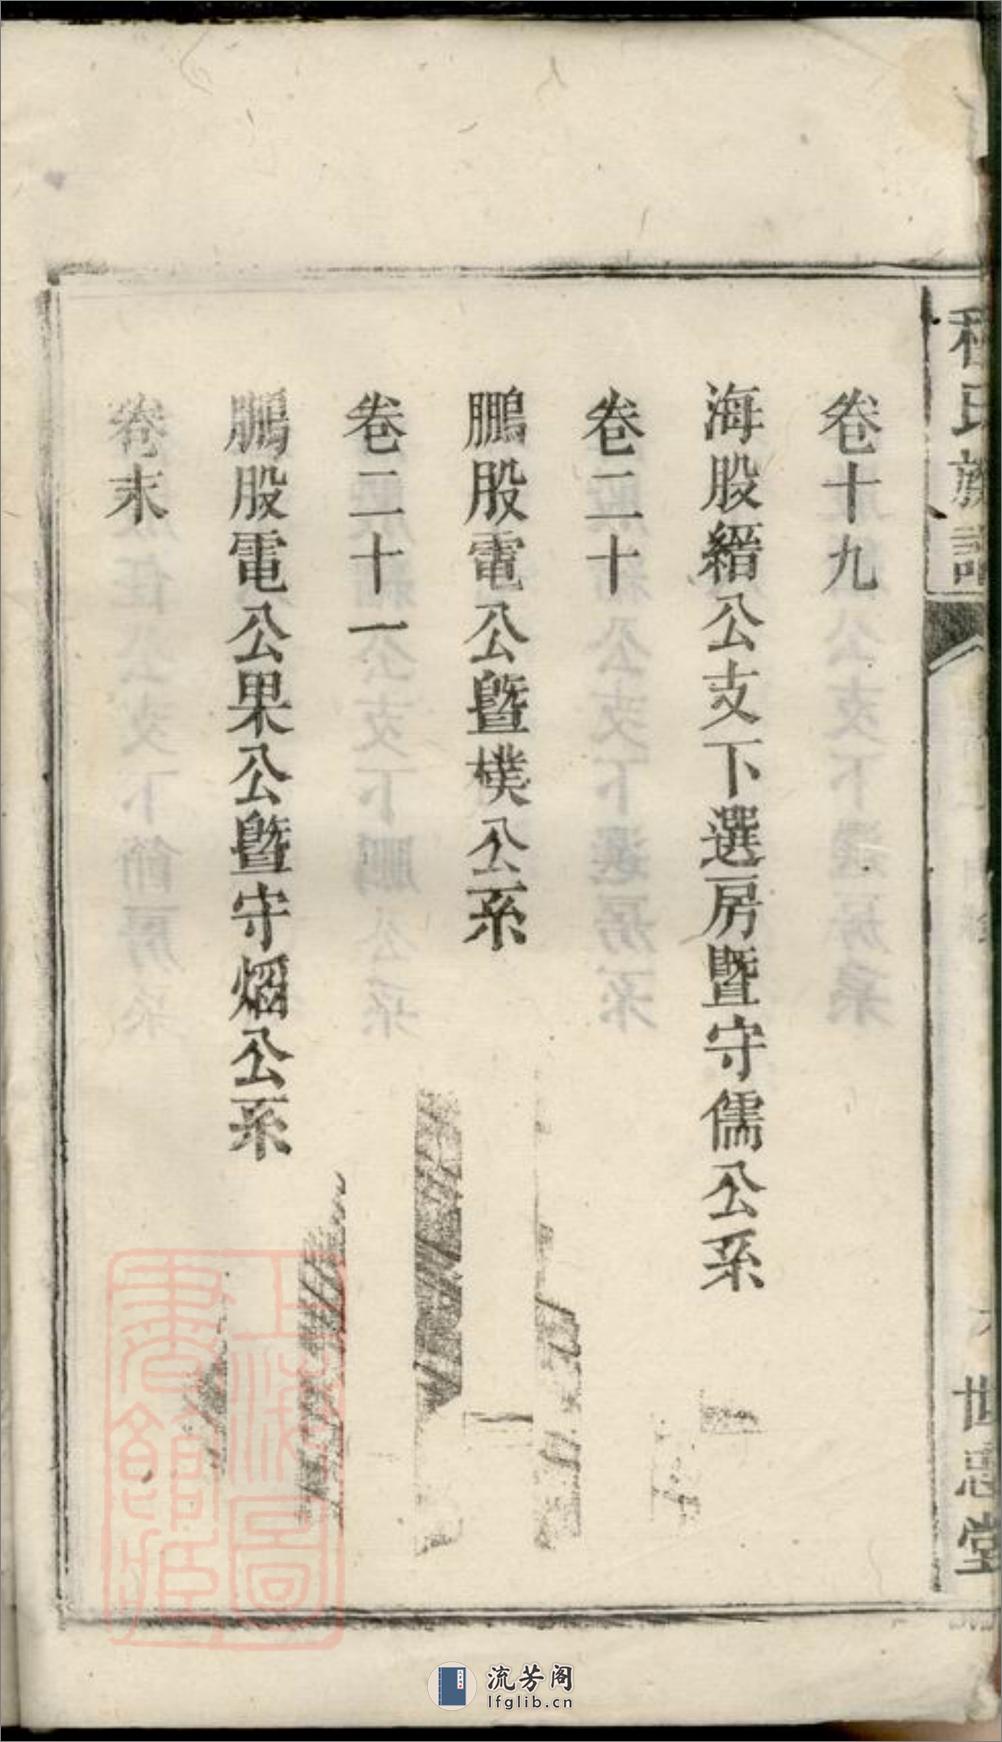 程氏族譜
世忠堂
卷十九
海股縉公支下選房暨守儒公系
卷二十
鵬股電公暨樸公系
卷二十一
鵬股電公果公暨守熠公系
卷末
上海圖書館藏
流芳阁
lfglib.cn